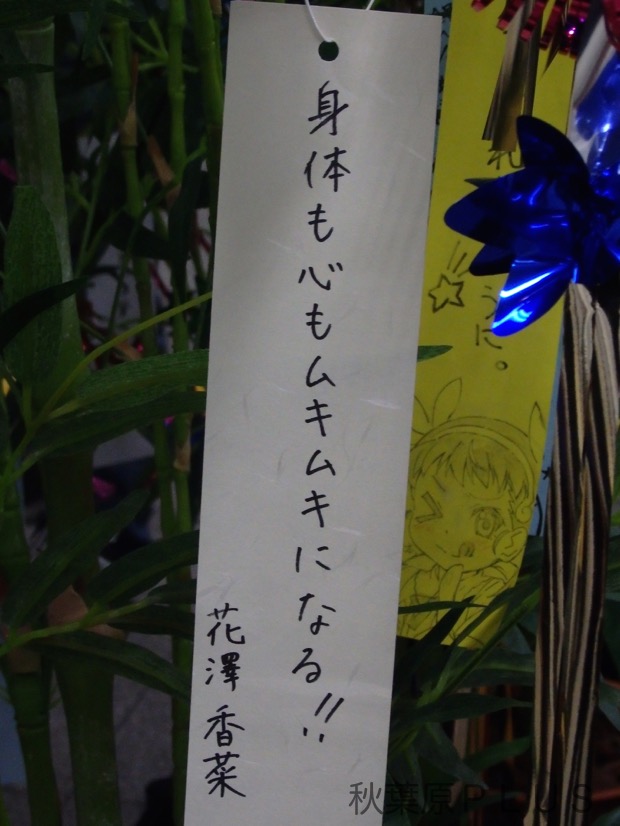 身体も心もムキムキになる!!
花澤香菜
うに。
秋葉原PLUS